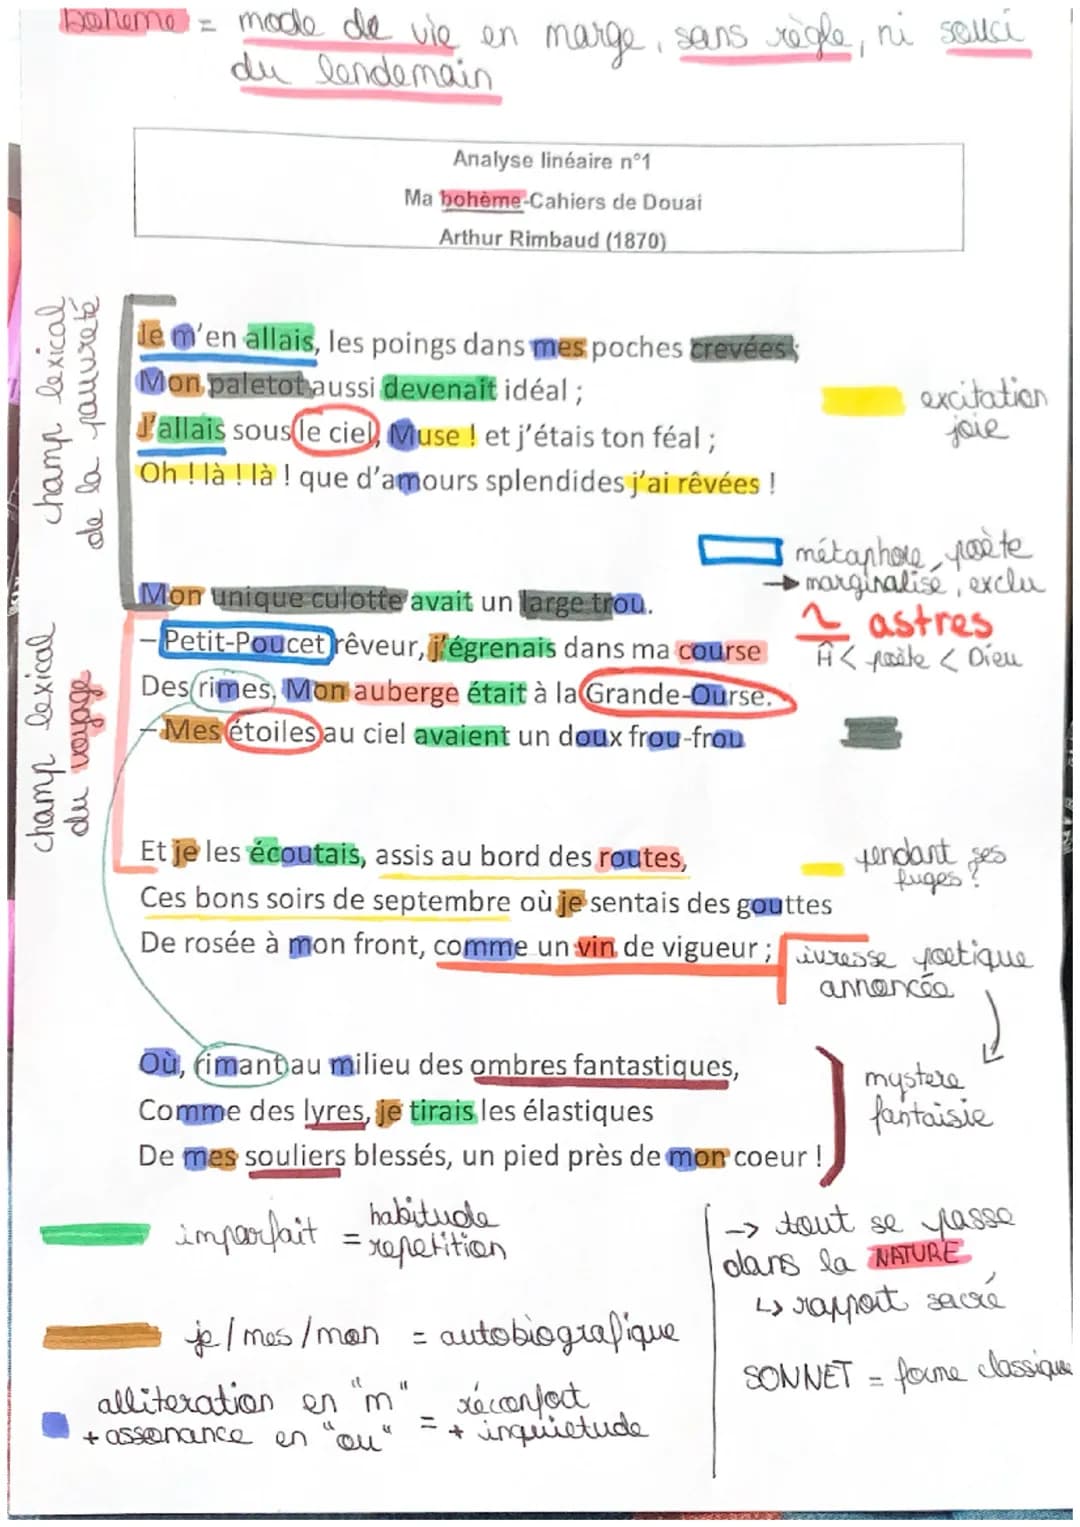 bohème = mode de vie en marge, sans règle, ni souci
du lendemain
Analyse linéaire n°1
Ma bohème-Cahiers de Douai
Arthur Rimbaud (1870)
champ lexical
de la pauvreté
Je m'en allais, les poings dans mes poches crevées ;
Mon paletot aussi devenait idéal ;
J'allais sous le ciel, Muse ! et j'étais ton féal ;
Oh ! là ! là ! que d'amours splendides j'ai rêvées !
excitation
joie
métaphore, poète
→ marginalisé, exclu
astres
Ĥ < poète < Dieu
champ lexical
du voyage
Mon unique culotte avait un large trou.
– Petit-Poucet rêveur, j'égrenais dans ma course
Des rimes. Mon auberge était à la Grande-Ourse.
– Mes étoiles au ciel avaient un doux frou-frou
Et je les écoutais, assis au bord des routes,
Ces bons soirs de septembre où je sentais des gouttes
De rosée à mon front, comme un vin de vigueur ;
pendant ses
fuges ?
ivresse poetique
annoncée
Où, rimant au milieu des ombres fantastiques,
Comme des lyres, je tirais les élastiques
De mes souliers blessés, un pied près de mon coeur !
mystere
fantaisie
imparfait = habitude
repetition
je / mes / mon = autobiografique
alliteration en "m"
+ assonance en "ou" = réconfort
+ inquietude
→ tout se passe
dans la NATURE
↳ rapport sacré
SONNET = forme classique